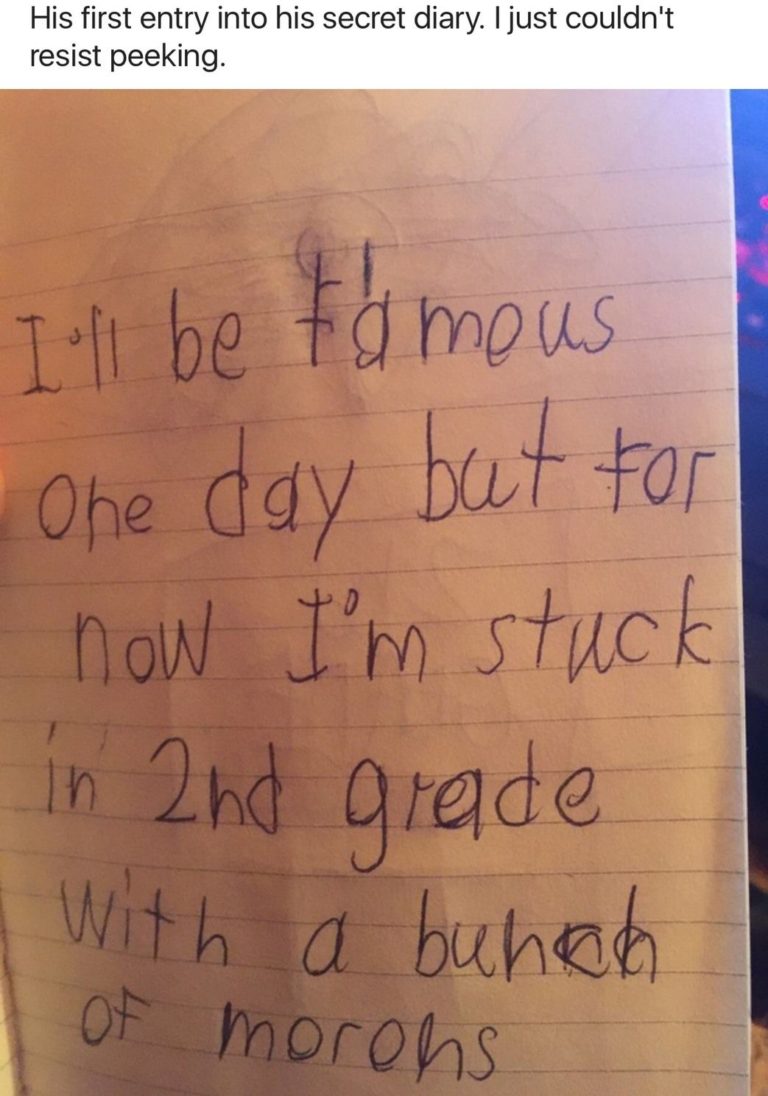 His first entry into his secret diary. I just couldn't
resist peeking.
I'll be famous
One day but for
now I'm stuck
in 2nd grade
With a bunch
of morons